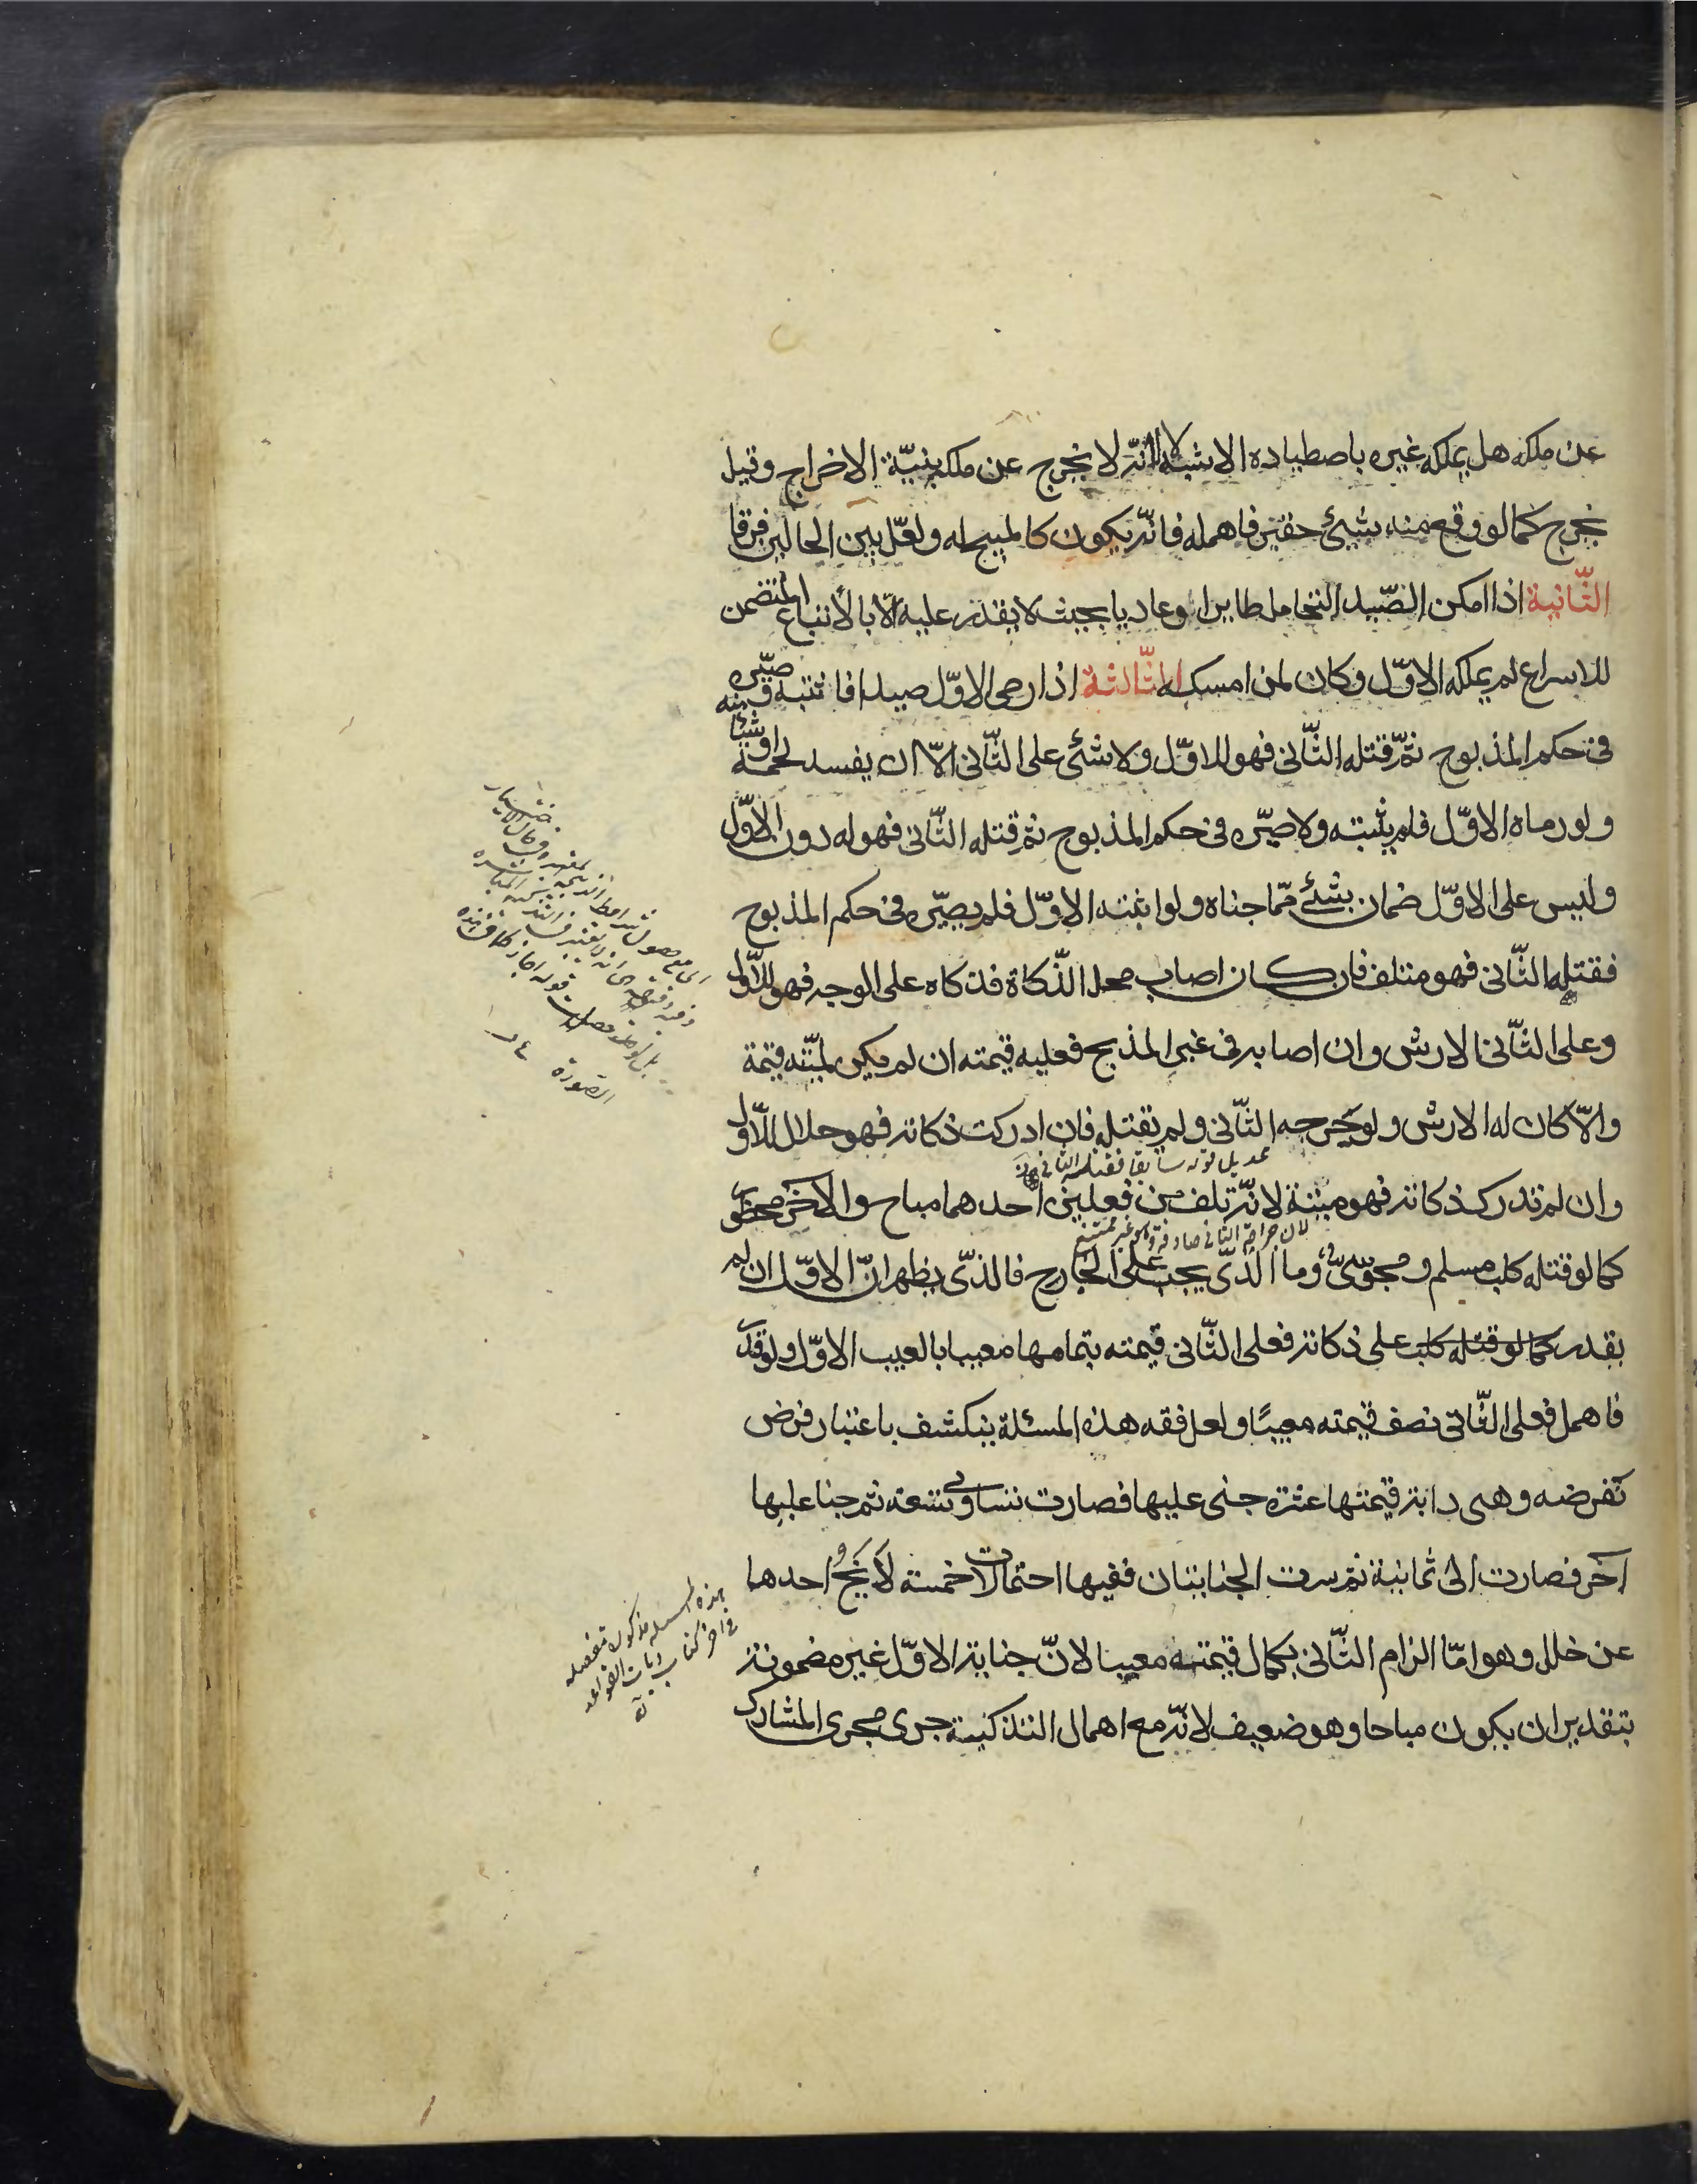 عن ملكه هل يملكه غيره باصطياده الاشبه لا لانه لا يخرج عن ملكه بنيّة الاخراج وقيل
يخرج كما لو وقع منه شيئ حقير فاهمله فانّه يكون كالمبيح له ولعلّ بين الحالين فرقا
الثّانية اذا امكن الصّيد التحامل طايرا او عاديا بحيث لا يقدر عليه الّا بالأتباع المتضمن
للاسراع لم يملكه الاوّل وكان لمن امسكه الثّالثة اذا رمى الاوّل صيدا فاثبته وصيّره
فى حكم المذبوح ثمّ قتله الثّانى فهو للاوّل ولا شئ على الثّانى الّا ان يفسد لحمه او شيئا منه
ولو رماه الاوّل فلم يثبته ولا صيّره فى حكم المذبوح ثمّ قتله الثّانى فهو له دون الاوّل
وليس على الاوّل ضمان بشئ ممّا جناه ولو اثبته الاوّل فلم يصيّره فى حكم المذبوح
فقتله الثّانى فهو متلف فان كان اصاب محل الذّكاة فذكاه على الوجه فهو للاوّل
وعلى الثّانى الارش وان اصابه فى غير المذبح فعليه قيمته ان لم يكن لميّته قيمة
والّا كان له الارش ولو جرحه الثّانى ولم يقتله فان ادركت ذكاته فهو حلال للاوّل
عديل قوله سابقا فقتله الثانى
وان لم تدرك ذكاته فهو ميتة لانّه تلف من فعلين احدهما مباح والآخر محظور
لان جراحة الثانى صادفته وهو غير ممتنع
كما لو قتله كلب مسلم ومجوسىّ وما الّذى يجب على الجارح فالذّى يظهر انّ الاوّل ان لم
يقدر كما لو قتله كلب على ذكاته فعلى الثّانى قيمته بتمامها معيبا بالعيب الاوّل ولو قدر
فاهمل فعلى الثّانى نصف قيمته معيبًا ولعل فقه هذه المسئلة ينكشف باعتبار فرض
نفرضه وهى دابة قيمتها عشرة جنى عليها فصارت تساوى تسعة ثم جنا عليها
آخر فصارت الى ثمانية ثم سرت الجنايتان ففيها احتمالات خمسة لا يخلو احدها
عن خلل وهو امّا الزام الثّانى بكمال قيمته معيبا لانّ جناية الاوّل غير مضمونة
بتقدير ان يكون مباحا وهو ضعيف لانّه مع اهمال التذكية جرى مجرى المشارك
هذه المسئلة مذكور تفصيله
فى اخر كتاب ديات القواعد